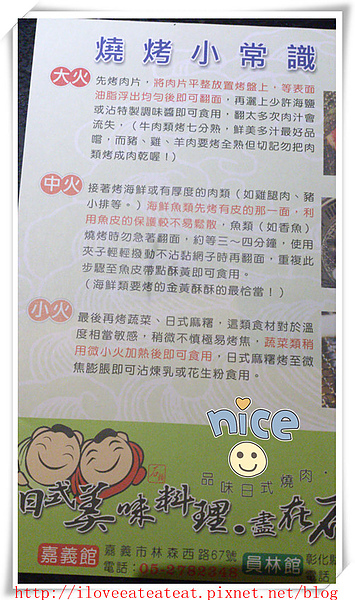 燒烤小常識
大火
先烤肉片，將肉片平整放置烤盤上，等表面
油脂浮出均勻後即可翻面，再灑上少許海鹽
或沾特製調味醬即可食用，翻太多次肉汁會
流失，（牛肉類烤七分熟，鮮美多汁最好品
嚐，而豬、雞、羊肉要烤全熟但切記勿把肉
類烤成肉乾喔！）
中火
接著烤海鮮或有厚度的肉類（如雞腿肉、豬
小排等。）海鮮魚類先烤有皮的那一面，利
用魚皮的保護較不易鬆散，魚類（如香魚）
燒烤時勿急著翻面，約等三～四分鐘，使用
夾子輕輕撥動不沾黏網子時再翻面，重複此
步驟至魚皮帶點酥黃即可食用。
（海鮮類要烤的金黃酥酥的最恰當！）
小火
最後再烤蔬菜、日式麻糬，這類食材對於溫
度相當敏感，稍微不慎極易烤焦，蔬菜類稍
用微小火加熱後即可食用，日式麻糬烤至微
焦膨脹即可沾煉乳或花生粉食用。
nice
品味日式燒肉．
日式美味料理．盡在
嘉義館
嘉義市林森西路67號
電話：05-2782348
員林館
彰化
電話
http://iloveeateateat.pixnet.net/blog